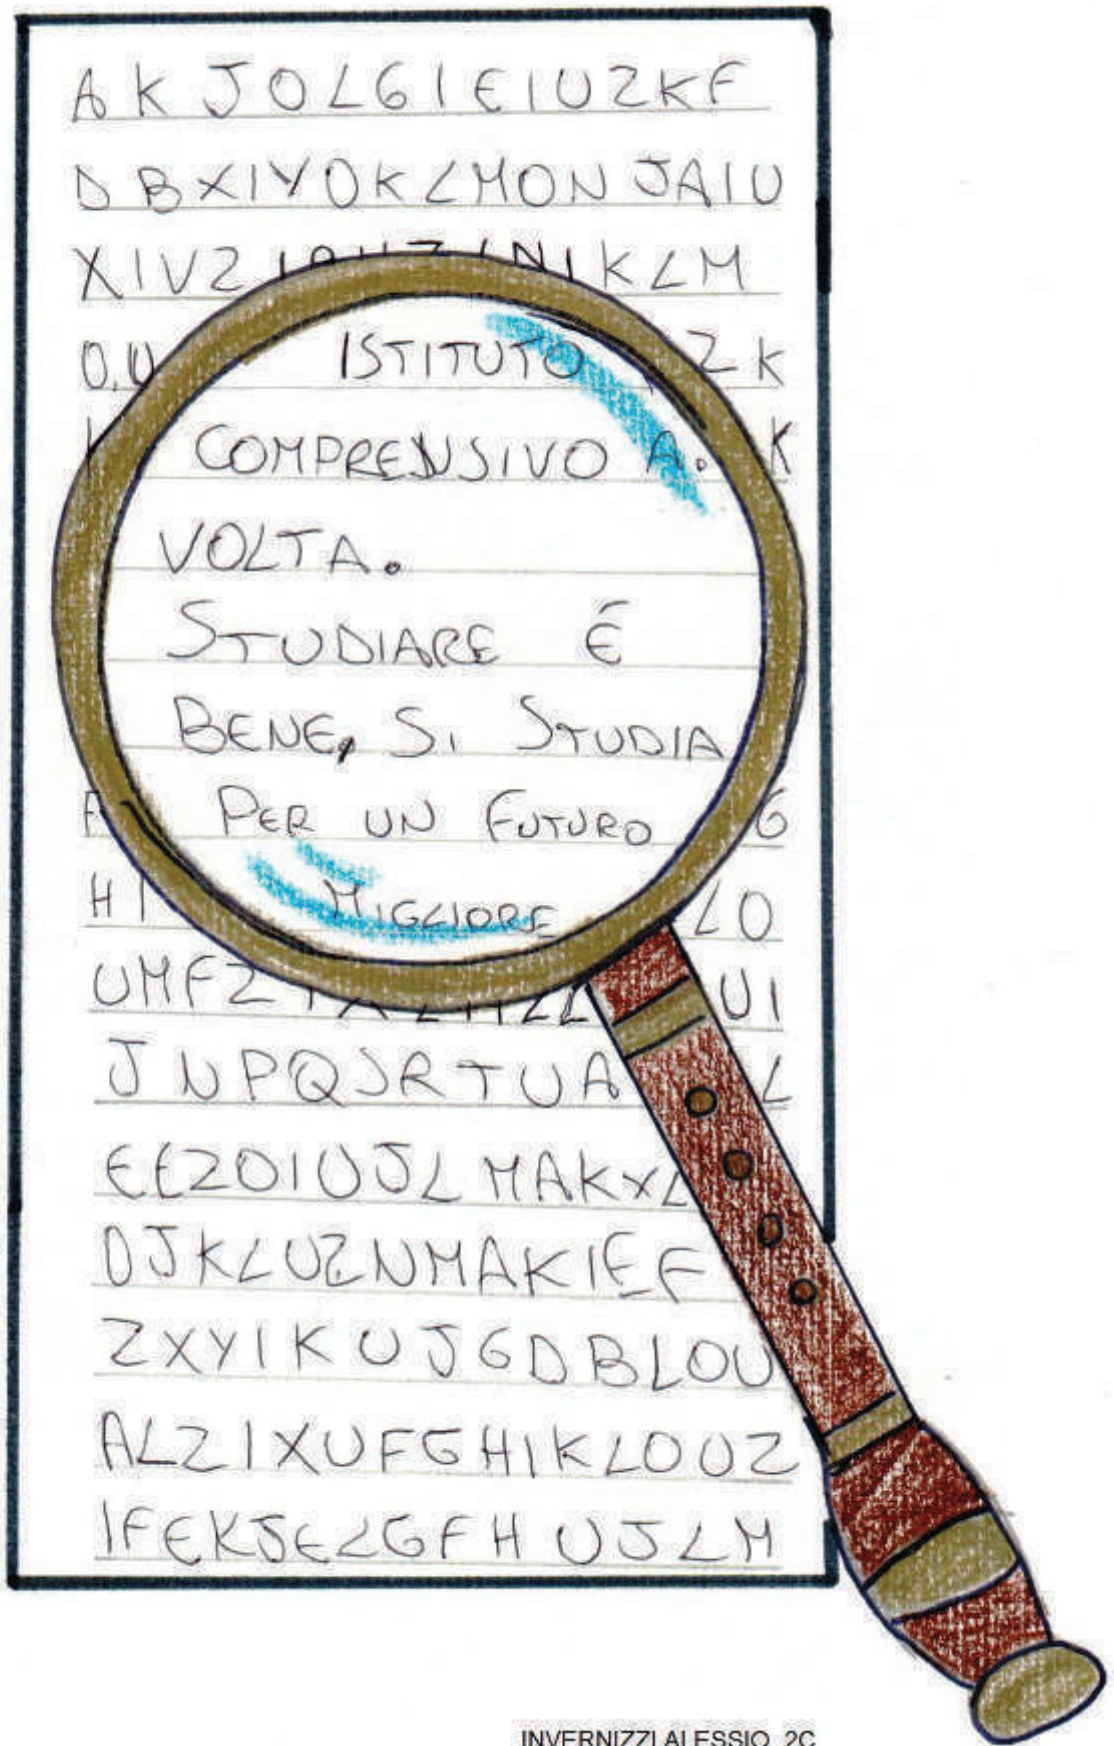 A K J O L G I E I U Z K F
D B X I Y O K L M O N J A I U
X I V Z K L M
O U ISTITUTO Z K
COMPRENSIVO A. K
VOLTA.
STUDIARE É
BENE, SI STUDIA
PER UN FUTURO G
H I MIGLIORE L O
U M F Z U I
J N P Q S R T U A L
E E Z O I U J L M A K X L
D J K L U Z N M A K I E F
Z X Y I K U J G D B L O U
A L Z I X U F G H I K L O U Z
I F E K J E L G F H U J L M
INVERNIZZI ALESSIO 2C